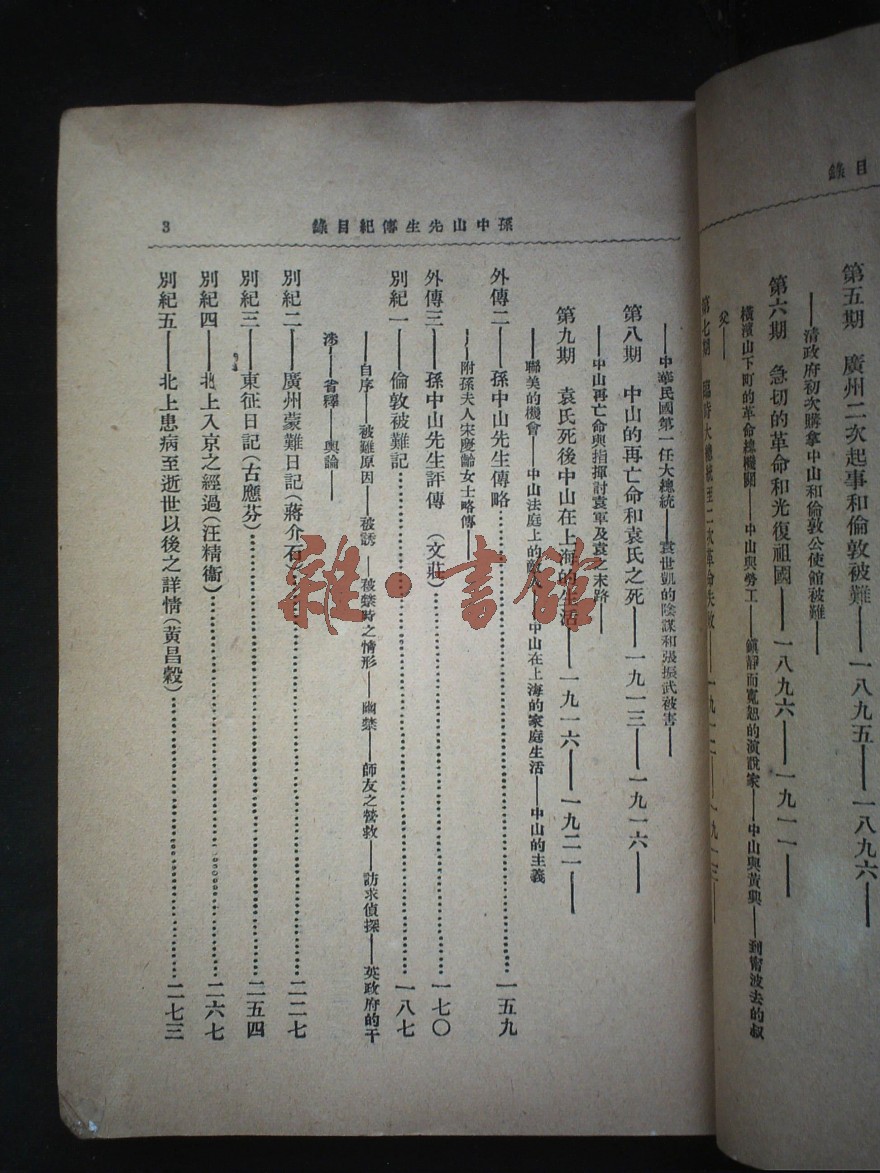 目錄
第五期　廣州二次起事和倫敦被難——一八九五——一八九六——
——清政府初次購拿中山和倫敦公使館被難——
第六期　急切的革命和光復祖國——一八九六——一九一一——
橫濱山下町的革命總機關——中山與勞工——鎮靜而寬恕的演說家——中山與黃興——到甯波去的叔
父——
第七期　臨時大總統至二次革命失敗——一九一二——一九一三——
孫中山先生傳紀目錄
3
——中華民國第一任大總統——袁世凱的陰謀和張振武被害——
第八期　中山的再亡命和袁氏之死——一九一三——一九一六——
——中山再亡命與指揮討袁軍及袁之末路——
第九期　袁氏死後中山在上海的生活——一九一六——一九二一——
——聯美的機會——中山法庭上的敵人——中山在上海的家庭生活——中山的主義
外傳二——孫中山先生傳略……一五九
——附孫夫人宋慶齡女士略傳——
外傳三——孫中山先生評傳（文莊）……一七〇
別紀一——倫敦被難記……一八七
——自序——被難原因——被誘——被禁時之情形——幽禁——師友之營救——訪求偵探——英政府的干
涉——省釋——輿論——
別紀二——廣州蒙難日記（蔣介石）……二二七
別紀三——東征日記（古應芬）……二五四
別紀四——北上入京之經過（汪精衞）……二六七
別紀五——北上患病至逝世以後之詳情（黃昌穀）……二七三
雜·書館